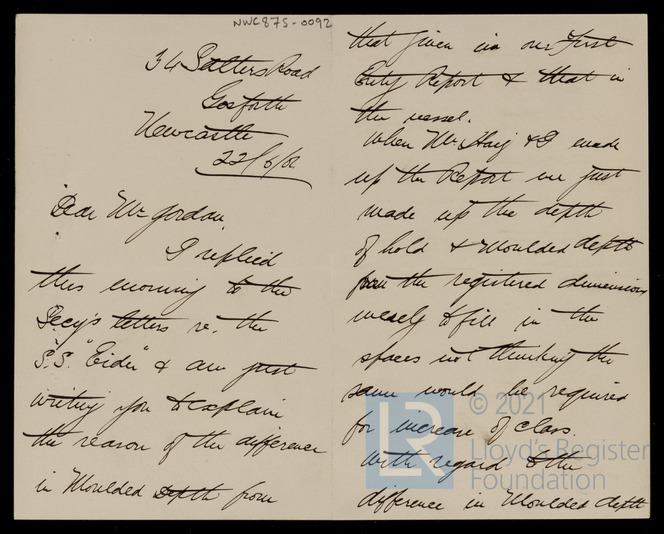 NWC875-0092
34 Salters Road
Gosforth
Newcastle
22/6/02
Dear Mr Gordon,
I replied
this morning to the
Secy's letters re. the
S.S. "Eider" & am just
writing you to explain
the reason of the difference
in Moulded Depth from
that given in our First
Entry Report & that in
the vessel.
When Mr Haig & I made
up the Report we just
made up the depth
of hold & Moulded depth
from the registered dimensions
merely to fill in the
spaces not thinking the
same would be required
for increase of class.
With regard to the
difference in Moulded depth
© 2021
LR
Lloyd's Register
Foundation